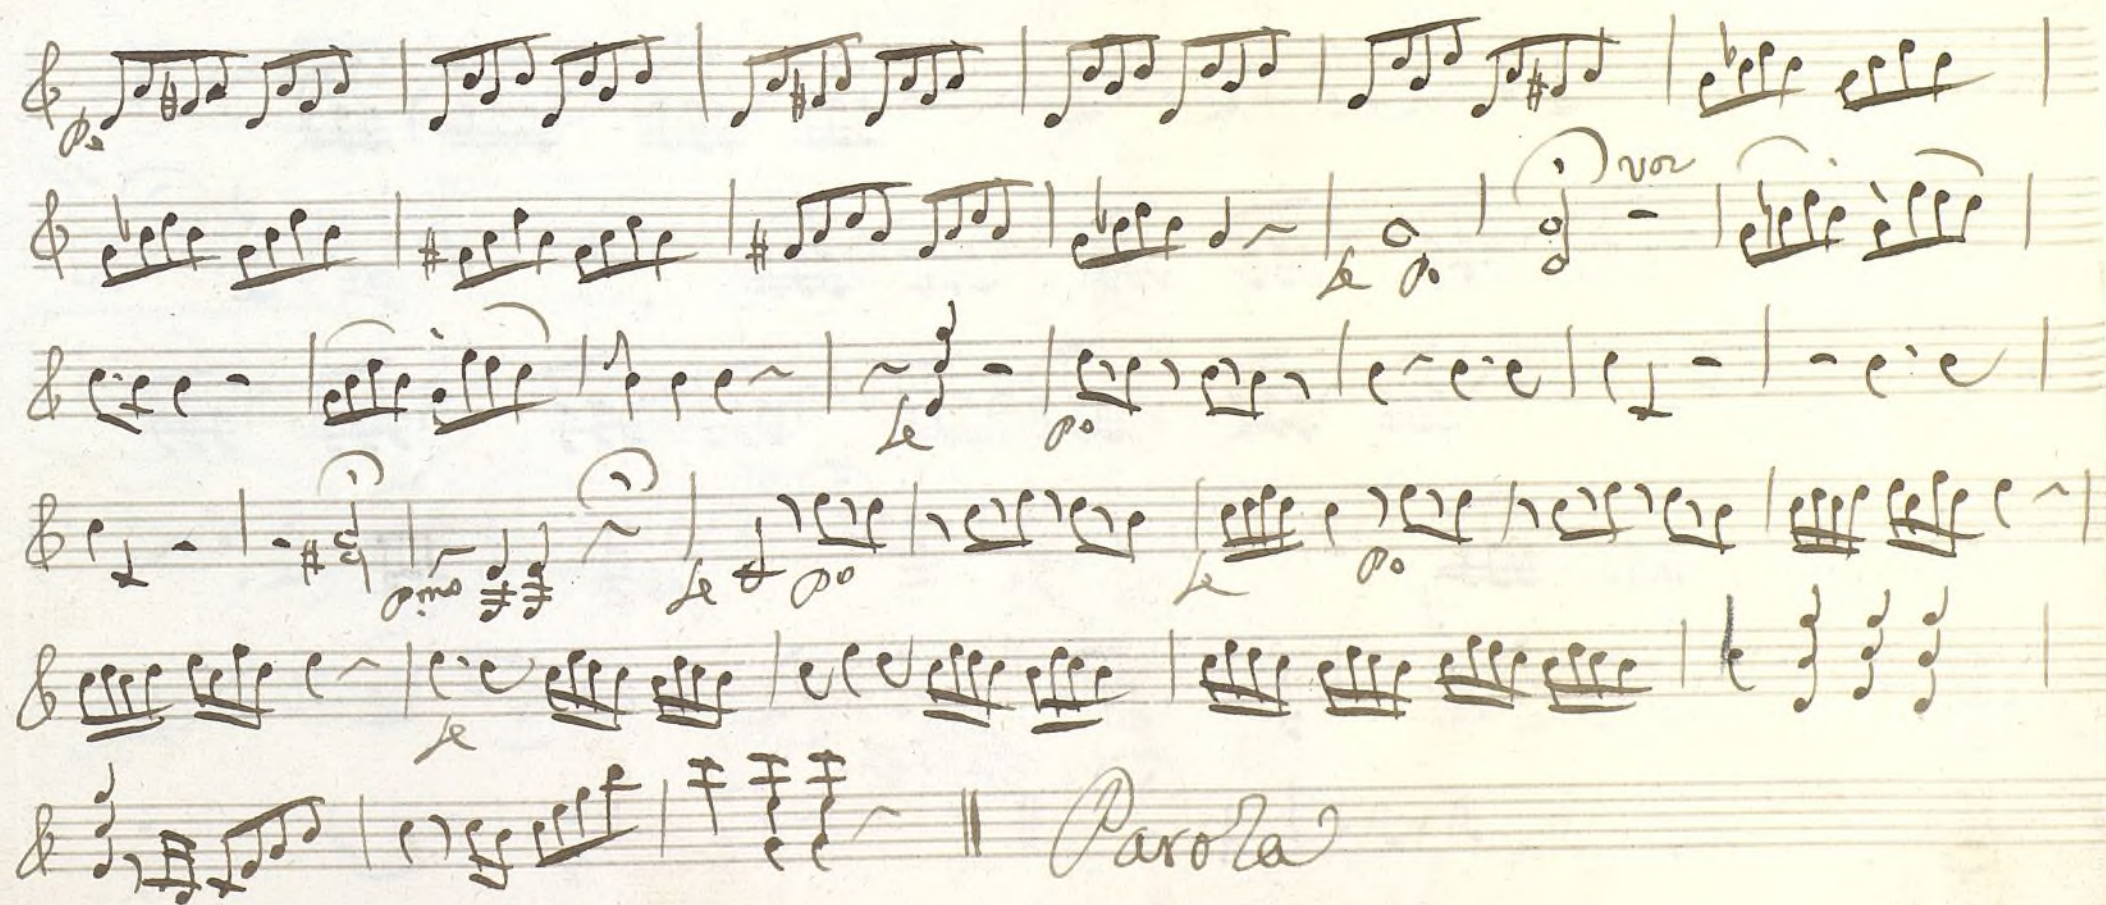 po
voz
fe po
fe po
pmo fe po fe po
fe
Parola